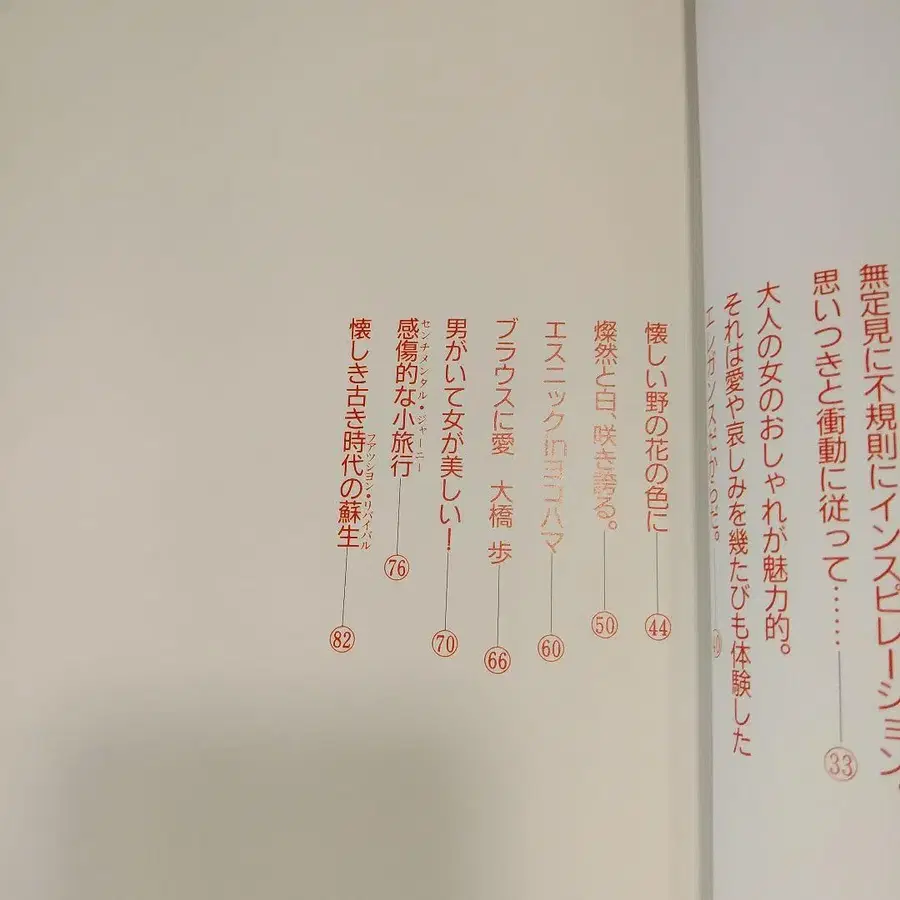 無定見に不規則にインスピレーション、
思いつきと衝動に従って……㉝
大人の女のおしゃれが魅力的。
それは愛や哀しみを幾たびも体験した
エレガンスだからだ。㊵
懐しい野の花の色に㊹
燦然と白、咲き誇る。㊿
エスニックinヨコハマ 60
ブラウスに愛 大橋 歩 66
男がいて女が美しい! 70
感傷的な小旅行 76
センチメンタル・ジャーニー
懐しき古き時代の蘇生 82
ファッション・リバイバル